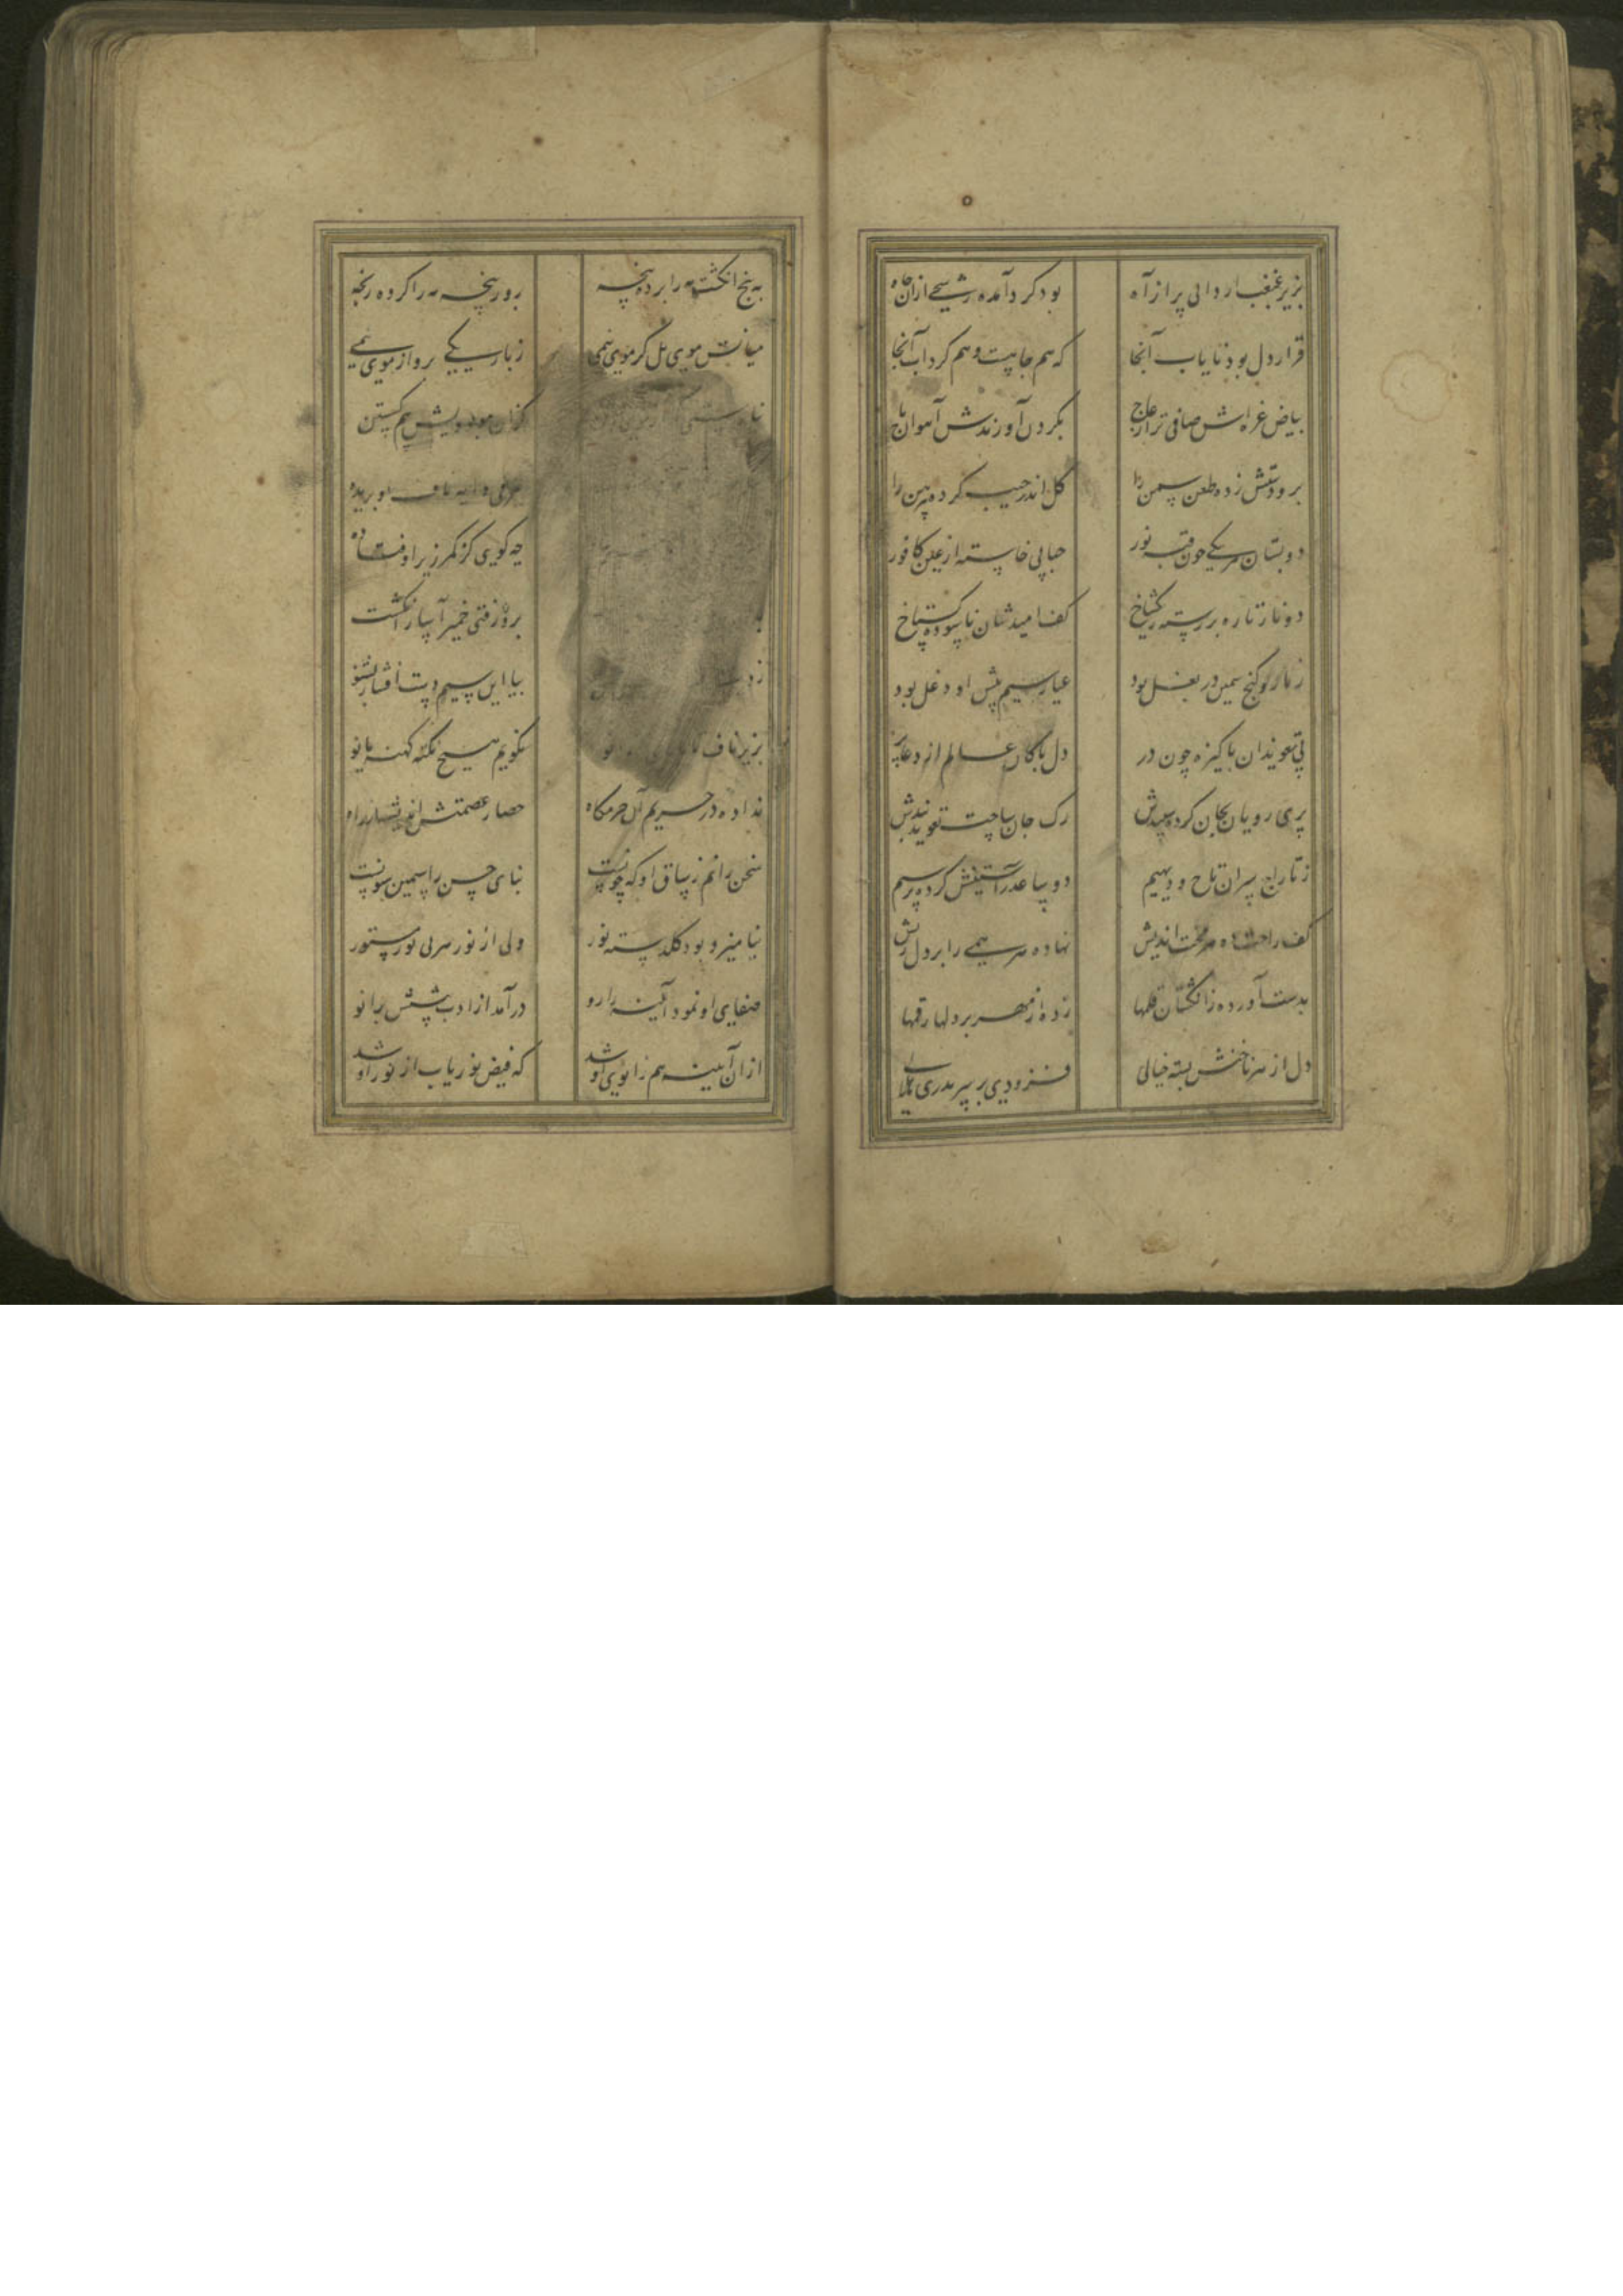 بزیر غبغب ار دانی پر از آه بود کرد آمده رشحی ازان چاه
قرار دل بود نایاب آنجا که هم چاهیست و هم کرداب آنجا
بیاض غره اش صافی تر از عاج بکردن آورندش آهوان باج
بر و دوشش زده طعن سمن را کل اندر جیب کرده پیرهن را
دو بستان هر یکی چون قبه نور حبابی خاسته از عین کافور
دو نار تازه بر رسته ز یکشاخ کف امیدشان ناسوده کستاخ
ز بازو کنج سیمین در بغل بود عیار سیم پیش او دغل بود
پی تعویذ آن پاکیزه چون در دل پاکان عالم از دعا پر
پری رویان بجان کرده سپندش رک جان ساخت تعویذ بندش
ز تاراج سران تاج و دیهیم دو ساعد آستینش کرده پر سیم
کف راحت ده هر محنت اندیش نهاده مرهمی را بر دل ریش
بدست آورده ز انکشتان قلمها زده از مهر بر دلها رقمها
دل از هر ناخنش بسته خیالی فزودی بر سر بدری هلالی
به پنج انکشت مه را برده پنجه بزور پنجه مه را کرده رنجه
میانش موی بل کز موی نیمی ز باریکی برو از موی بیمی
کزان مو بودیش بیم کسستن
ناف او بریده
چه کویی کز کمر زیر اوفتاده
برون رفتی خمیر آسا ز انکشت
بیا این سیم دست افشار بشنو
بزیر ناف نکویم هیچ نکته کهنه یا نو
نداده در حریم آن حرمکاه حصار عصمتش اندیشه را راه
سخن رانم ز ساق او که چونست بنای حسن را سیمین ستونست
بنامیزد بود کلدسته نور ولی از نور هر بی نور مستور
صفای او نمود آیینه را رو درآمد از ادب پیشش بزانو
ازان آیینه هم زانوی او شد که فیض نور یاب از نور او شد